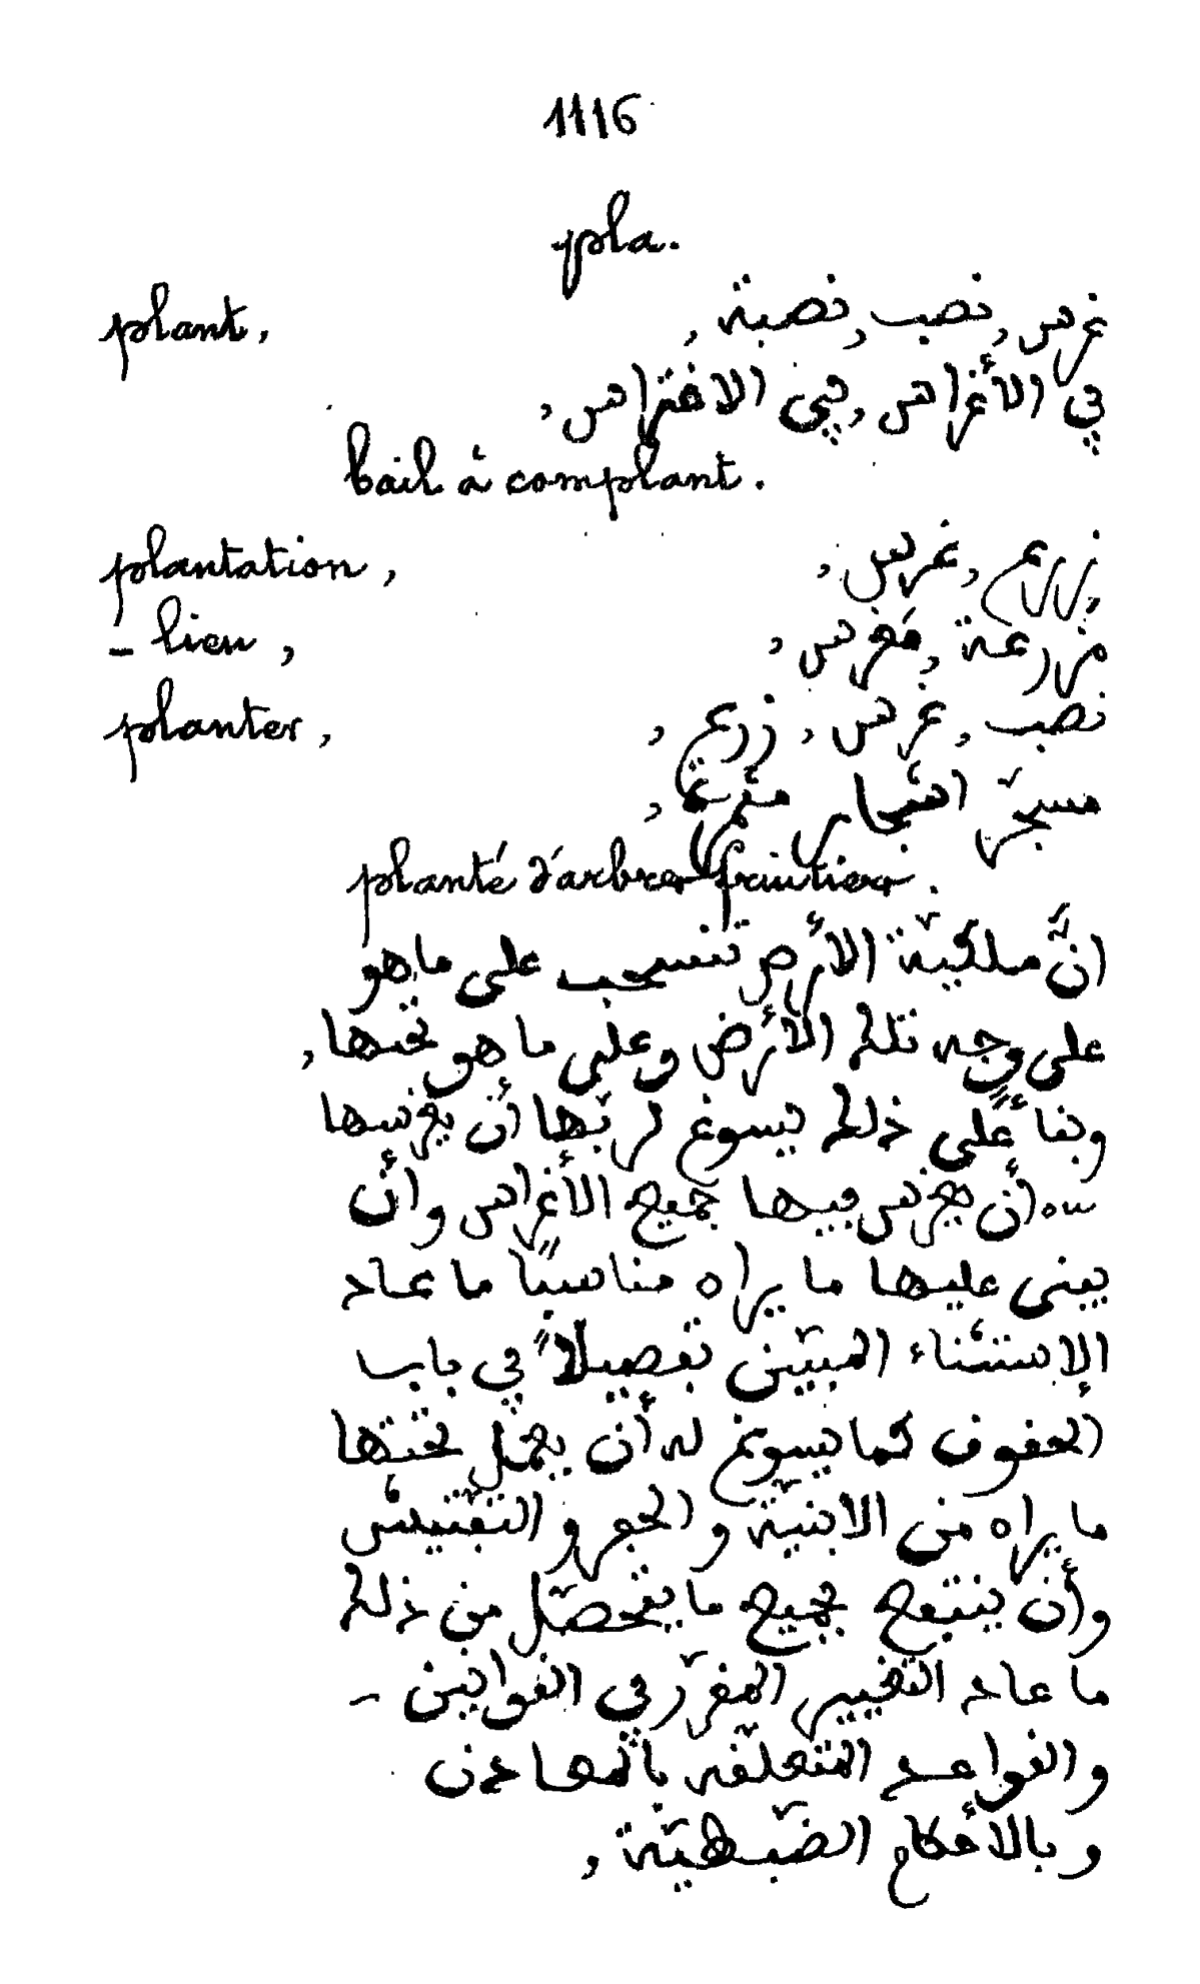 1116
pla.
plant, غرس, نصب, نصبة,
في الأغراس, في الاغتراس,
bail à complant.
plantation, زريع, غرس,
- lieu, مزرعة, مَغرس,
planter, نصب, غرس, زريع,
مسجّر اشجار مثمرة,
planté d'arbres fruitiers.
انَّ ملكيّة الأرض تنسحب على ما هو
على وجه تلك الأرض وعلى ما هو تحتها,
وبنأً على ذلك يسوغ لربّها أن يغرسها
أن يغرس فيها جميع الأغراس وأن
يبنى عليها ما يراه مناسبًا ما عاد
الإستثناء المبيّن تفصيلاً في باب
الحقوق كما يسوغ له أن يعمل تحتها
ما يراه من الابنيّة والحفر والتفتيش
وأن ينتفع بجميع ما يتحصّل من ذلك
ما عاد التغيير المقرّر في القوانين -
والقواعد المتعلّقه بالمعادن
وبالأحكام الضّبطيّة,